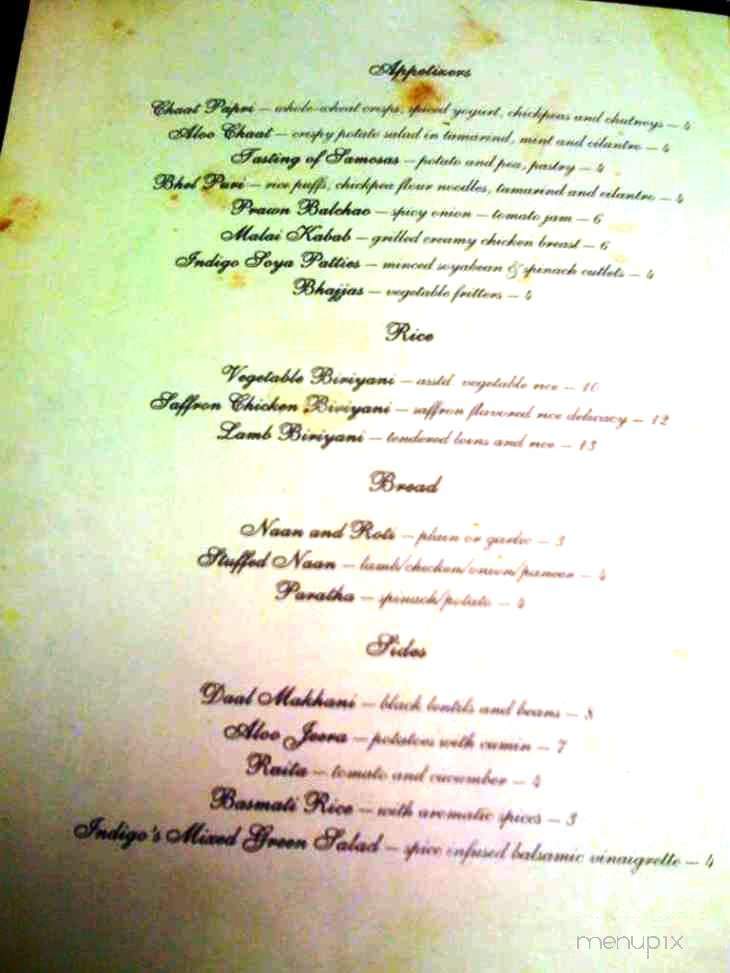 Appetizers
Chaat Papri – whole-wheat crisps, spiced yogurt, chickpeas and chutneys – 4
Aloo Chaat – crispy potato salad in tamarind, mint and cilantro – 4
Tasting of Samosas – potato and pea, pastry – 4
Bhel Puri – rice puffs, chickpea flour noodles, tamarind and cilantro – 4
Prawn Balchao – spicy onion – tomato jam – 6
Malai Kabab – grilled creamy chicken breast – 6
Indigo Soya Patties – minced soyabean & spinach cutlets – 4
Bhajjas – vegetable fritters – 4
Rice
Vegetable Biriyani – asstd. vegetable rice – 10
Saffron Chicken Biriyani – saffron flavored rice delicacy – 12
Lamb Biriyani – tendered loins and rice – 13
Bread
Naan and Roti – plain or garlic – 3
Stuffed Naan – lamb/chicken/onion/paneer – 4
Paratha – spinach/potato – 4
Sides
Daal Makhani – black lentils and beans – 8
Aloo Jeera – potatoes with cumin – 7
Raita – tomato and cucumber – 4
Basmati Rice – with aromatic spices – 3
Indigo's Mixed Green Salad – spice infused balsamic vinaigrette – 4
menupix